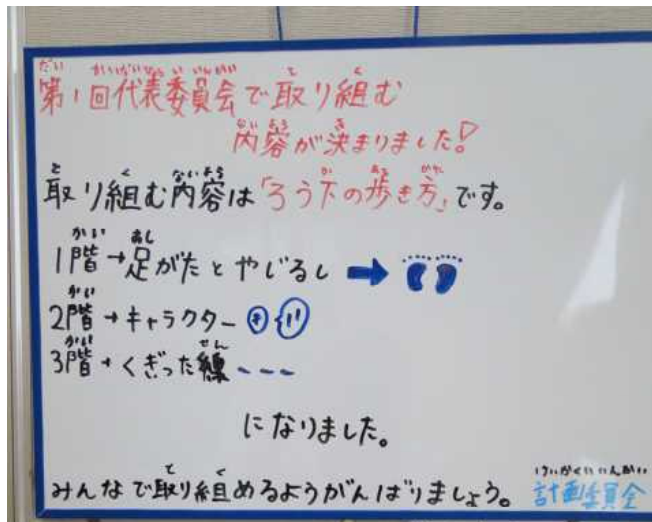 第1回代表委員会で取り組む
内容が決まりました!
取り組む内容は「ろう下の歩き方」です。
1階→足がたとやじるし ➡
2階→キャラクター
3階→くぎった線 ---
になりました。
みんなで取り組めるようがんばりましょう。
計画委員会